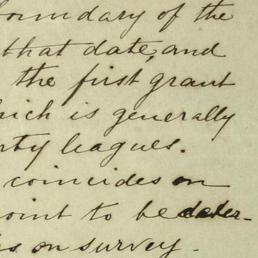 boundary of the
that date, and
the first grant
hich is generally
nty leagues.
coincides on
oint to be deter-
on survey.